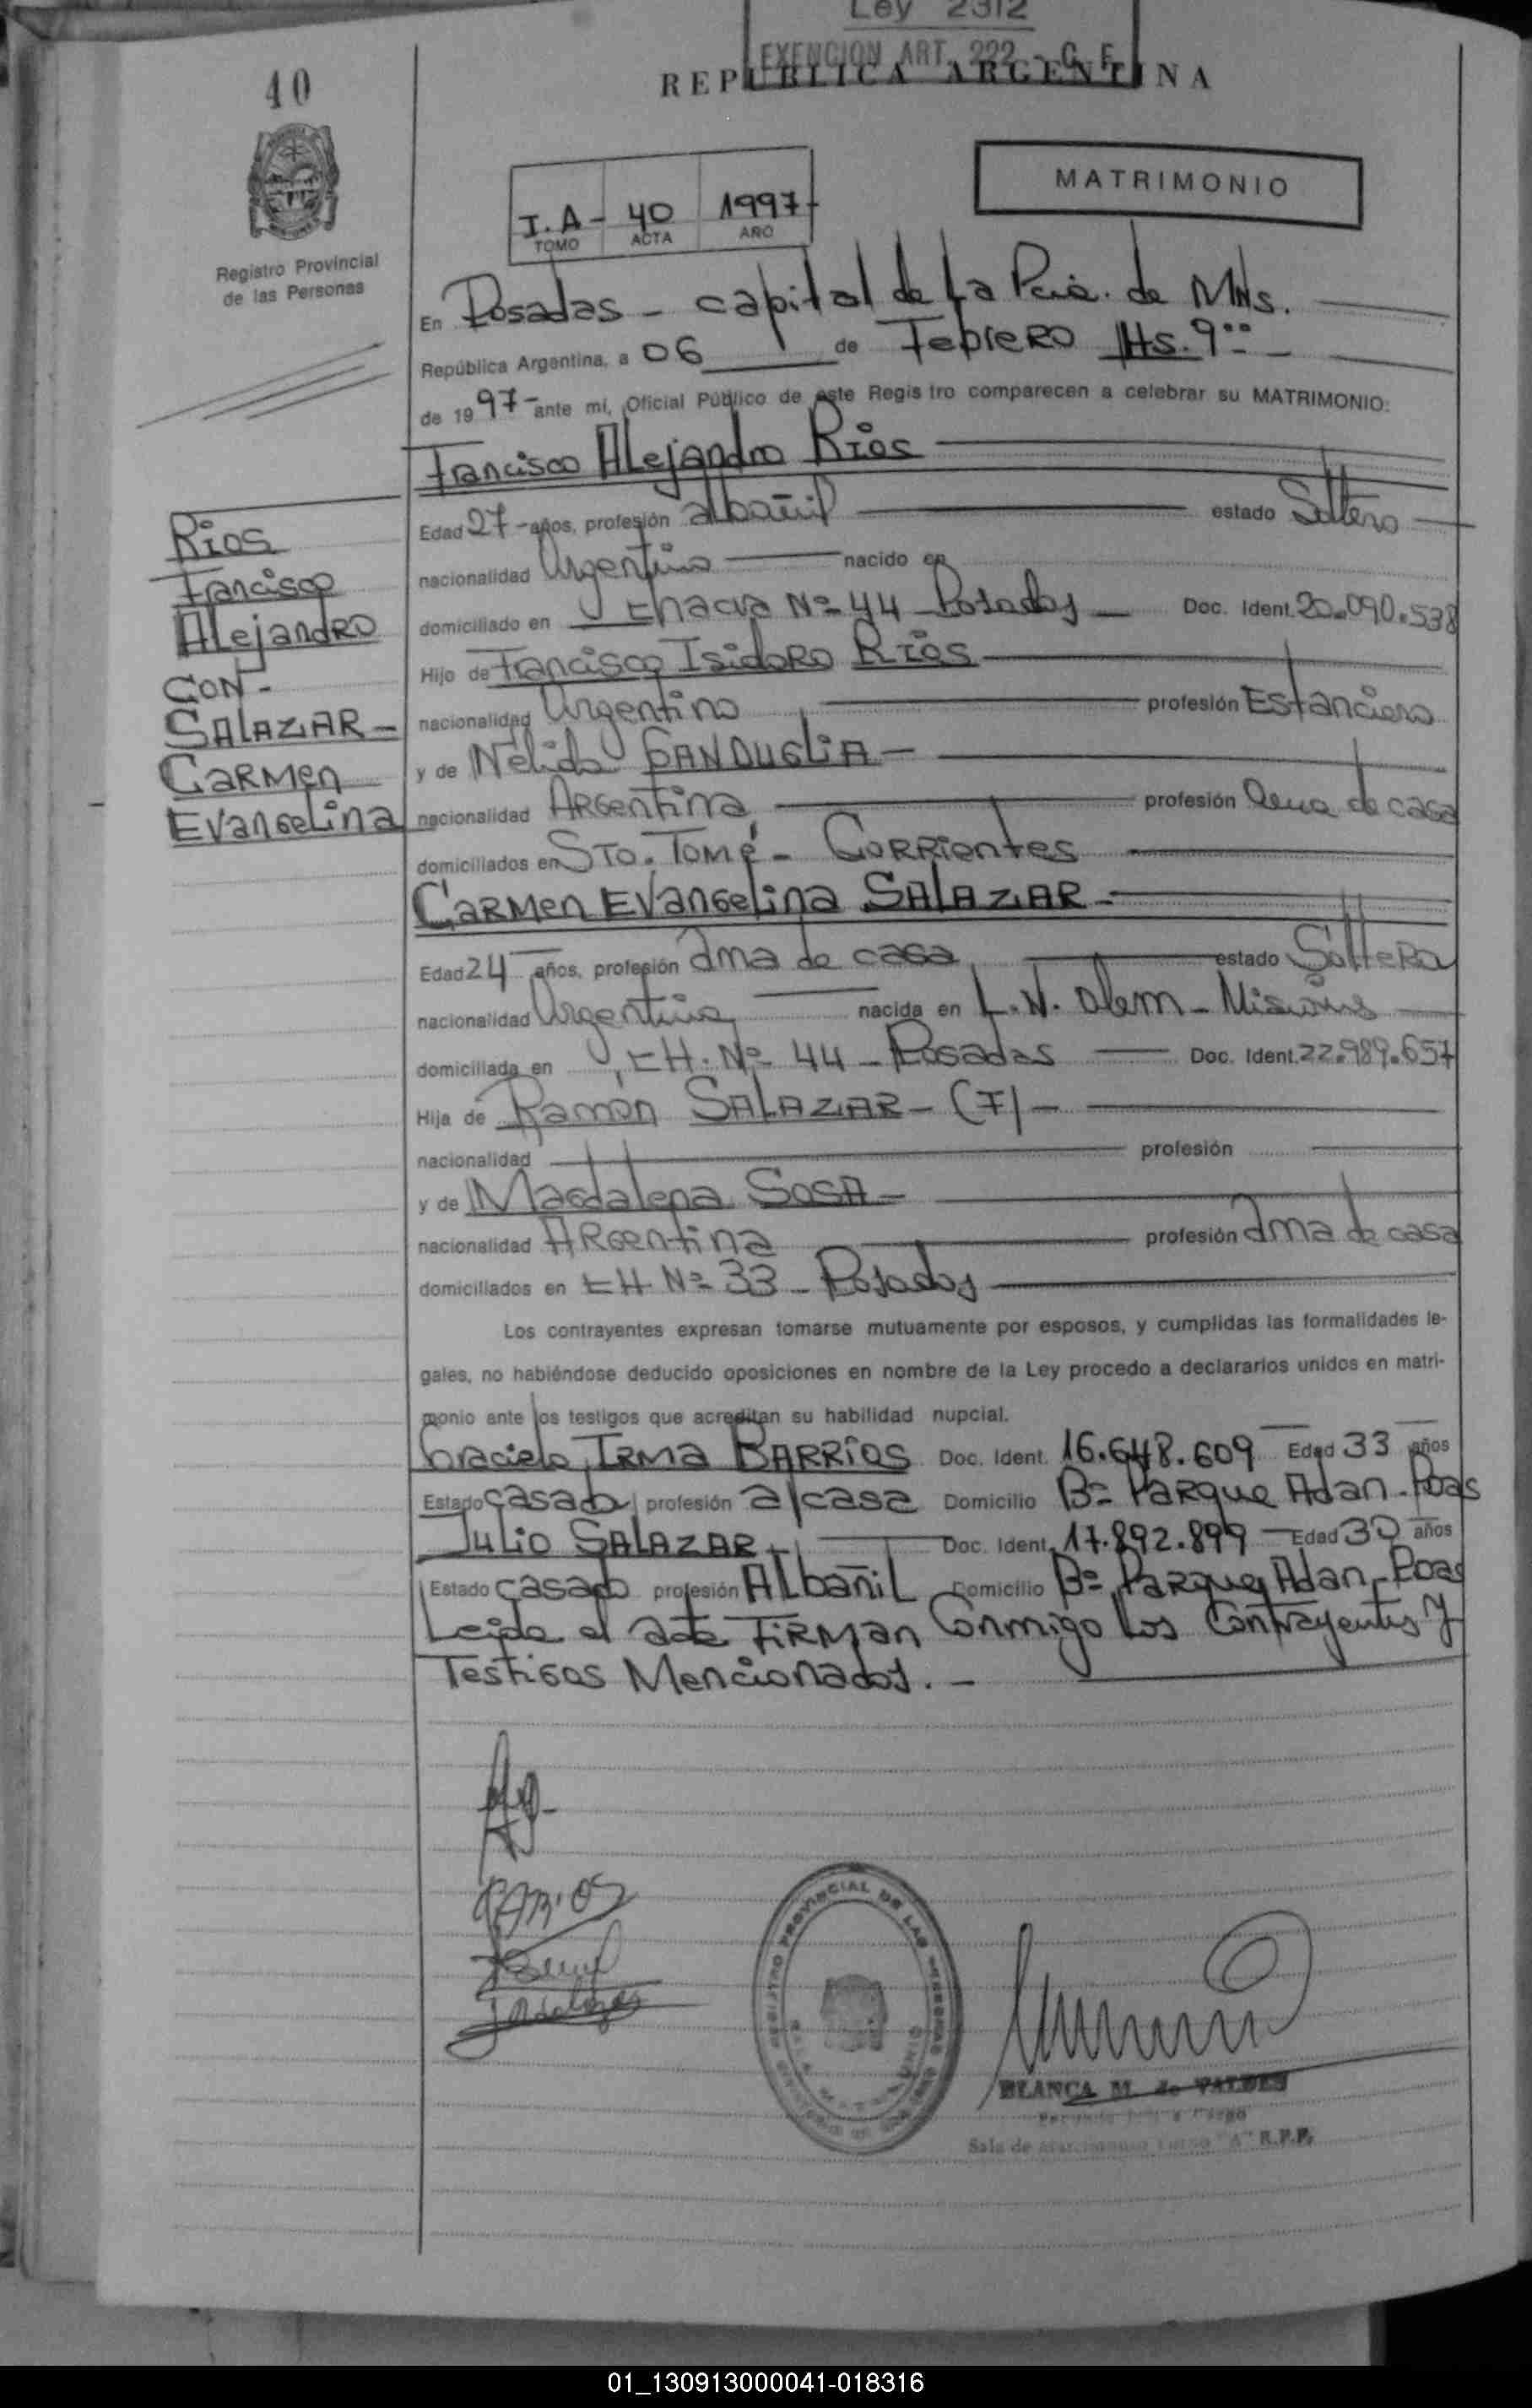 Ley 2312
EXENCION ART. 222 - C. F.
REPUBLICA ARGENTINA
40
MATRIMONIO
I.A- 40 1997-
TOMO ACTA AÑO
Registro Provincial
de las Personas
En Posadas - capital de La Pcia. de Mns.
República Argentina, a 06 de Febrero Hs. 9:00
de 1997- ante mi, Oficial Público de este Registro comparecen a celebrar su MATRIMONIO:
Francisco Alejandro Rios
Edad 27 - años, profesión albañil estado Soltero
nacionalidad Argentino nacido en
domiciliado en Chacra Nº 44 Posadas Doc. Ident. 20.090.538
Hijo de Francisco Isidoro Rios
nacionalidad Argentino profesión Estanciero
y de Nélida GANDUGLIA -
nacionalidad Argentina profesión Ama de casa
domiciliados en Sto. Tomé - Corrientes
Rios
Francisco
Alejandro
CON -
SALAZAR -
Carmen
Evangelina
Carmen Evangelina SALAZAR -
Edad 24 años, profesión ama de casa estado Soltera
nacionalidad Argentina nacida en L. N. Alem - Misiones
domiciliada en CH. Nº 44 - Posadas Doc. Ident. 22.989.657
Hija de Ramón SALAZAR - (F) -
nacionalidad profesión
y de Magdalena SOSA -
nacionalidad Argentina profesión ama de casa
domiciliados en CH Nº 33 - Posadas
Los contrayentes expresan tomarse mutuamente por esposos, y cumplidas las formalidades le-
gales, no habiéndose deducido oposiciones en nombre de la Ley procedo a declararlos unidos en matri-
monio ante los testigos que acreditan su habilidad nupcial.
Graciela Irma BARRIOS Doc. Ident. 16.648.609 Edad 33 años
Estado casada profesión a/casa Domicilio Bº Parque Adan - Poas
Julio SALAZAR - Doc. Ident. 17.892.899 Edad 30 años
Estado casado profesión Albañil Domicilio Bº Parque Adan - Poas
Leida el acta firman conmigo los Contrayentes y
Testigos Mencionados. -
REGISTRO PROVINCIAL DE LAS PERSONAS
BLANCA M. de VALDES
Sala de "A" R.P.P.
01_130913000041-018316